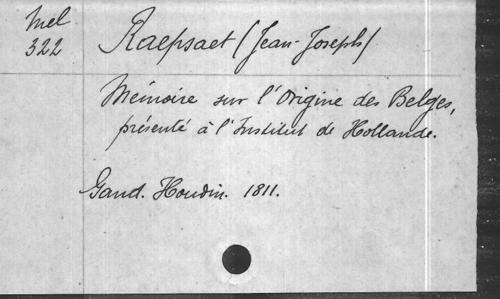 Mel
322
Raepsaet (Jean-Joseph)
Mémoire sur l'Origine des Belges,
présenté à l'Institut de Hollande.
Gand. Houdin. 1811.